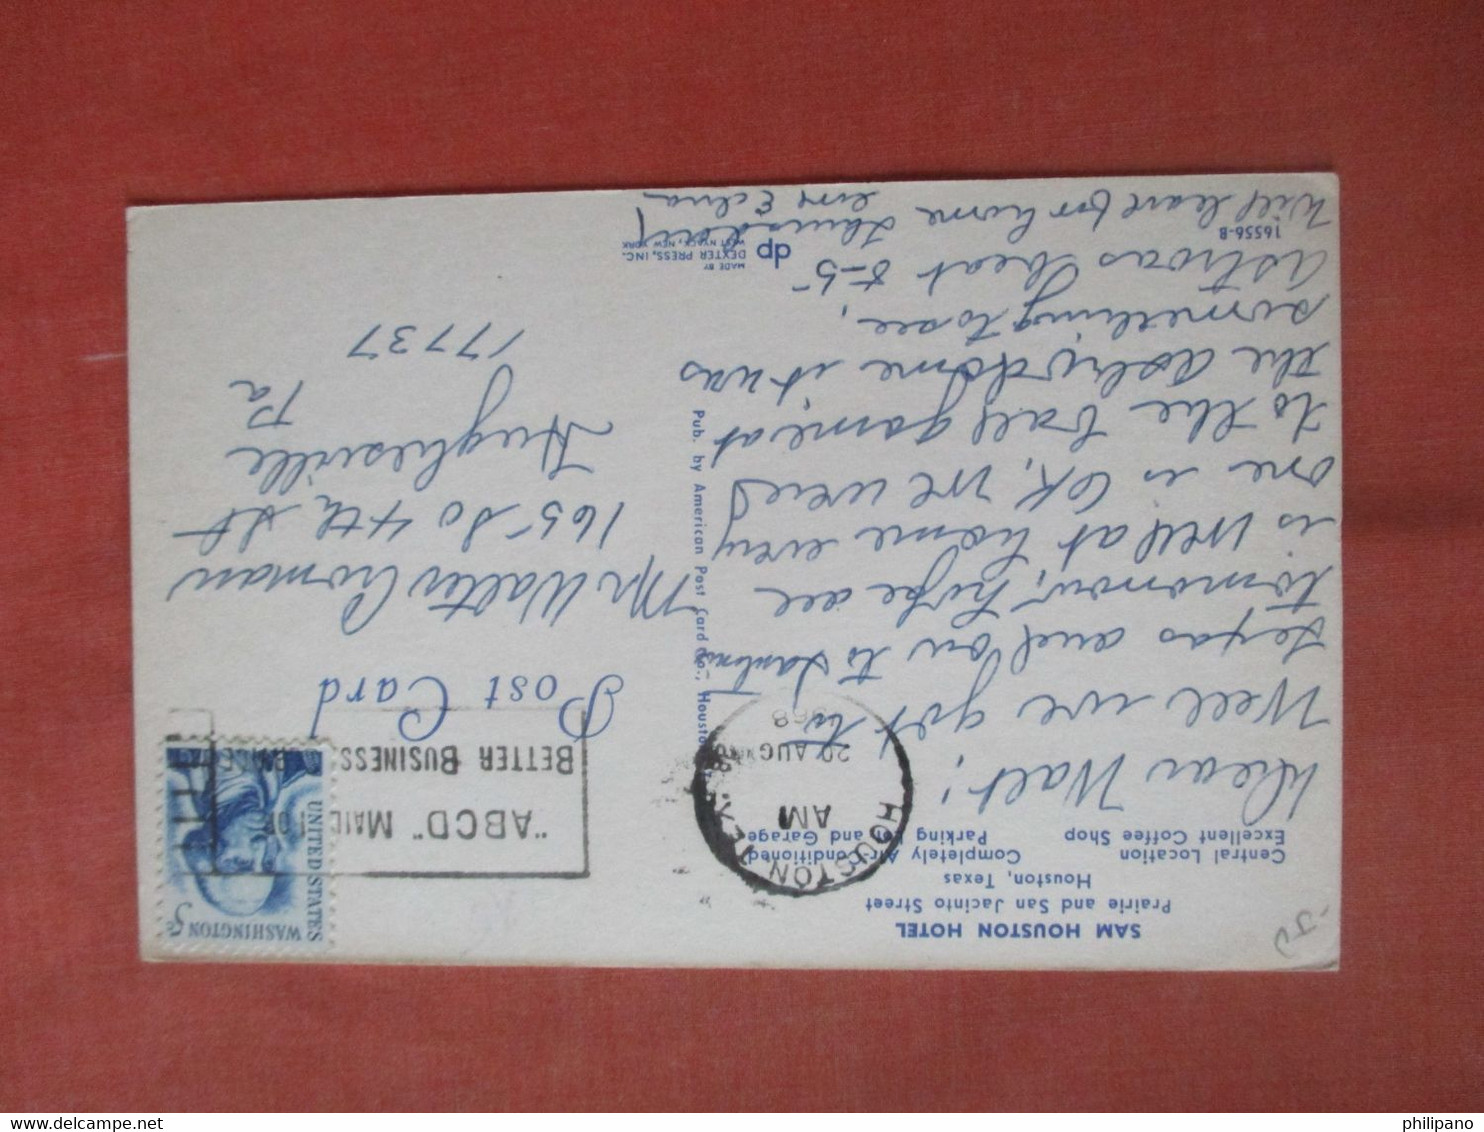 SAM HOUSTON HOTEL
Prairie and San Jacinto Street
Houston, Texas
Central Location Completely Air-Conditioned
Excellent Coffee Shop Parking Lot and Garage
Dear Walt;
Well we got to
texas and on to
tomorrow, hope all
is well at home every
one is OK, we went
to the ball game at
the Astrodome it was
something to see,
Astros beat 8-5
Will leave for home
Edna
16556-B
HOUSTON, TEX.
AM
20 AUG
1968
"ABCD" MAIL FOR
BETTER BUSINESS
UNITED STATES
WASHINGTON 5c
Post Card
Mr Walter Croman
165 So 4th St
Hughesville
Pa
17737
Pub. by American Post Card Co., Houston
dp
MADE BY
DEXTER PRESS, INC.
WEST NYACK, NEW YORK
www.delcampe.net
philipano